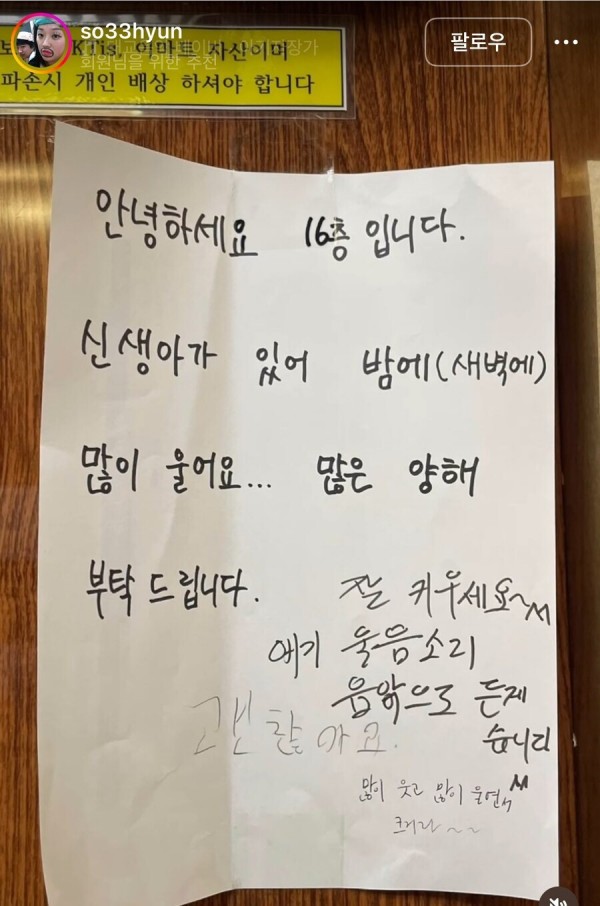 so33hyun
팔로우
KTis, 이마트 자산이며
회원님을 위한 추천
파손시 개인 배상 하셔야 합니다
안녕하세요 16층 입니다.
신생아가 있어 밤에(새벽에)
많이 울어요... 많은 양해
부탁 드립니다.
잘 키우세요~^^
애기 울음소리
음앆으로 듣게
습니다
괜찮아요.
많이 웃고 많이 울면서
크거라~~